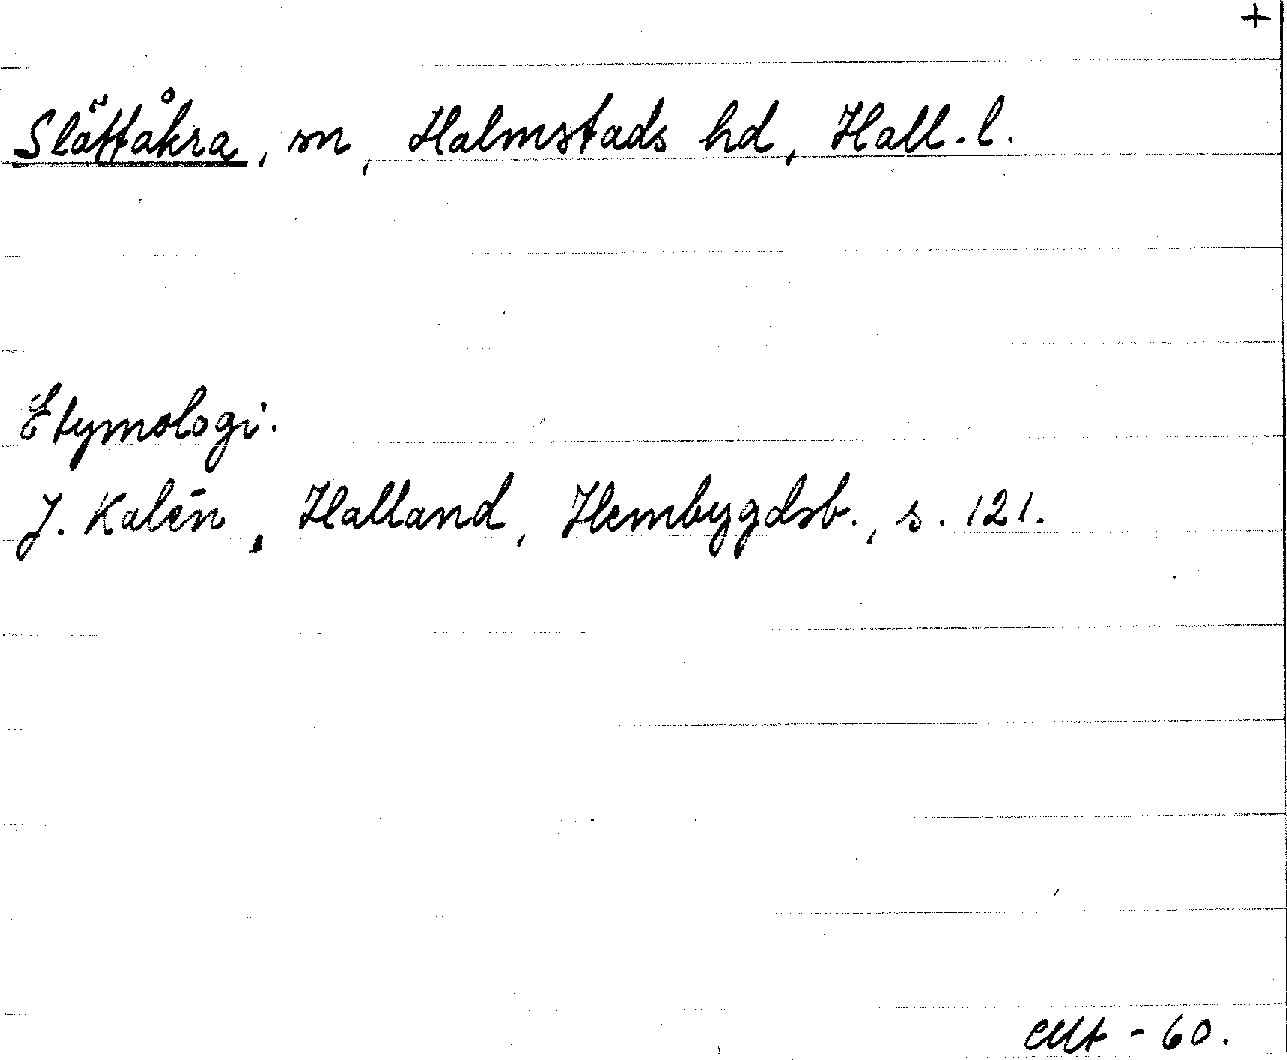 +
Slättåkra, sn, Halmstads hd, Hall. l.
Etymologi.
J. Kalén, Halland, Hembygdsb., s. 121.
- 60.